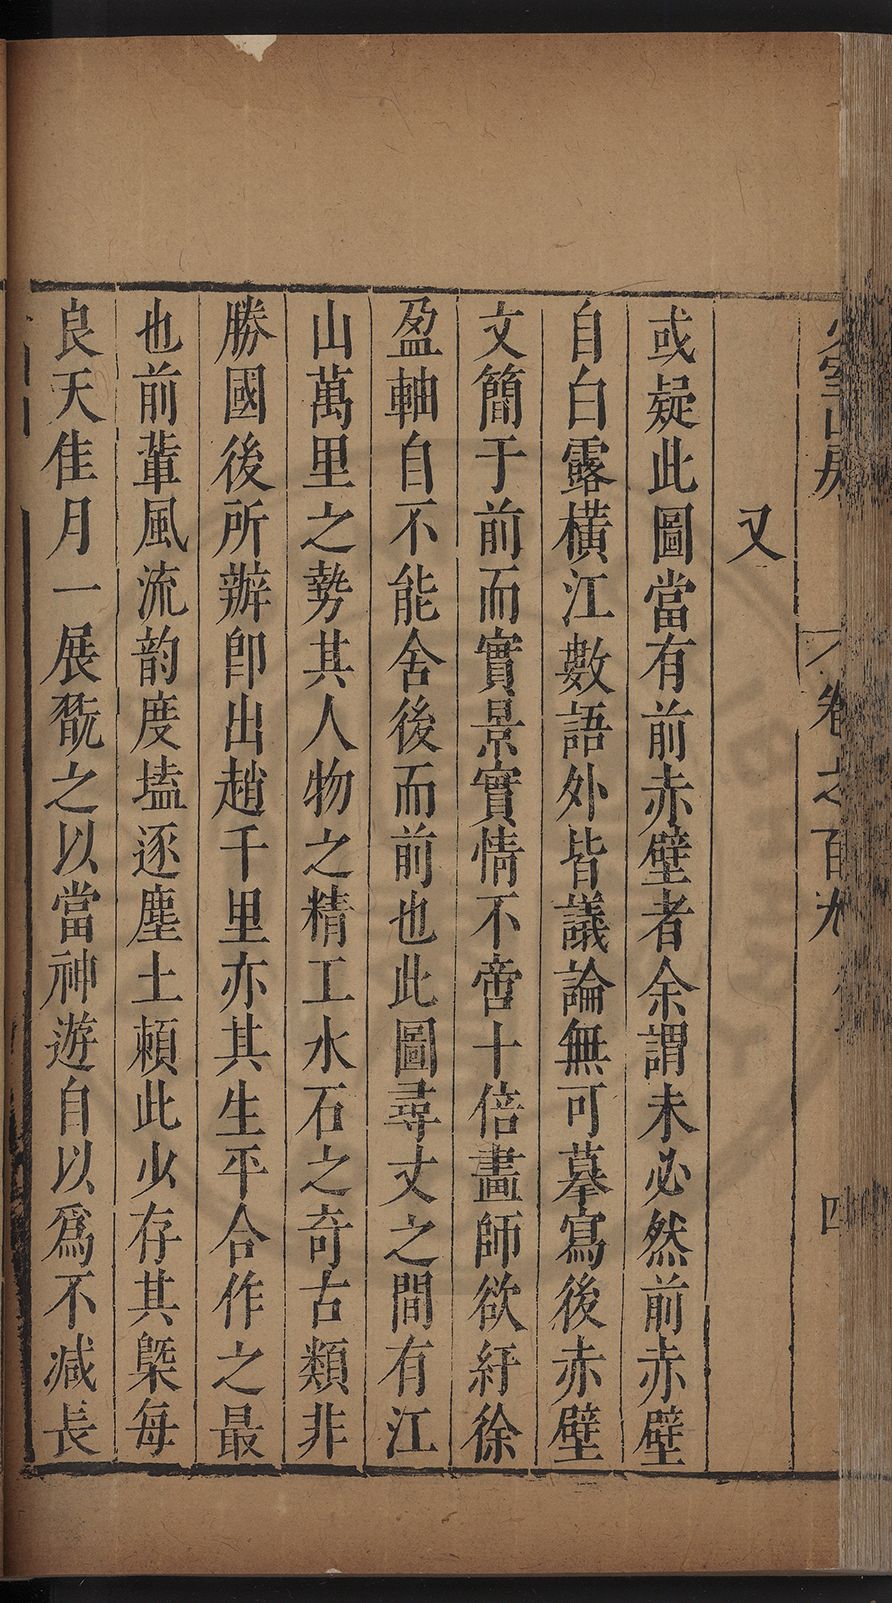 少室山房 卷之百九 四
又
或疑此圖當有前赤壁者余謂未必然前赤壁
自白露橫江數語外皆議論無可摹寫後赤壁
文簡于前而實景實情不啻十倍畫師欲紆徐
盈軸自不能舍後而前也此圖尋丈之間有江
山萬里之勢其人物之精工水石之奇古類非
勝國後所辦卽出趙千里亦其生平合作之最
也前輩風流韵度壒逐塵土頼此少存其槩每
良天佳月一展翫之以當神遊自以爲不減長